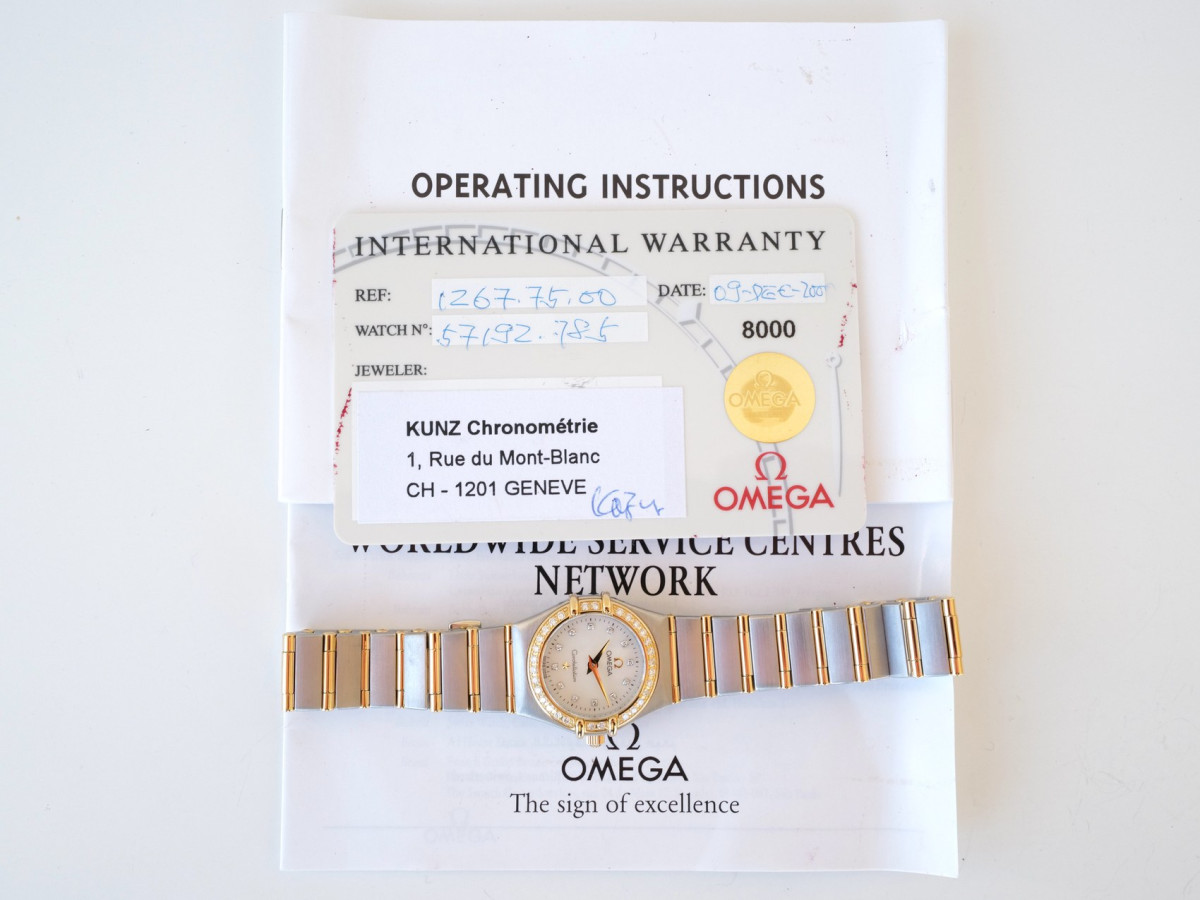 OPERATING INSTRUCTIONS
INTERNATIONAL WARRANTY
REF: 1267.75.00 DATE: 09-DEC-200
WATCH N°: 57192.785
8000
JEWELER:
OMEGA
KUNZ Chronométrie
1, Rue du Mont-Blanc
CH - 1201 GENEVE
Ω
OMEGA
WORLDWIDE SERVICE CENTRES
NETWORK
Ω
OMEGA
Constellation
Ω
OMEGA
The sign of excellence